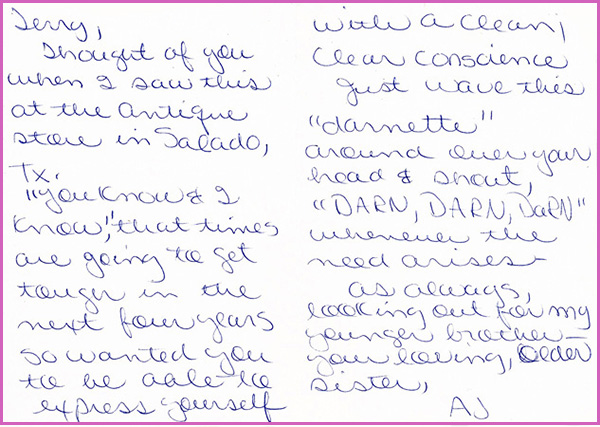 Jerry,
Thought of you
when I saw this
at the antique
store in Salado,
Tx.
"You know & I
know", that times
are going to get
tough in the
next four years
so wanted you
to be able to
express yourself
with a clean,
clear conscience
Just wave this
"darnette"
around over your
head & shout,
"DARN, DARN, DaRN"
whenever the
need arises-
as always,
looking out for my
younger brother-
your loving, Older
Sister,
AJ